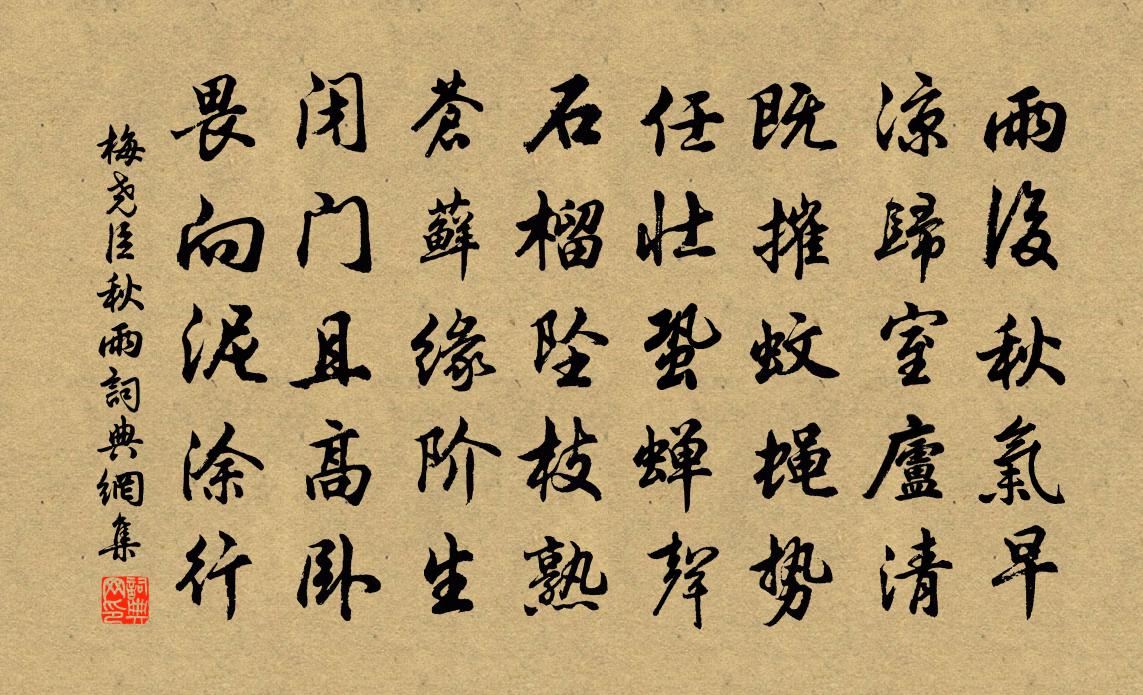 雨後秋氣早
涼歸室廬清
既摧蚊蝇势
任壮蛩蝉聲
石榴坠枝熟
蒼蘚缘阶生
闭门且高卧
畏向泥涂行
梅尧臣秋雨詞典網集
詞典网印